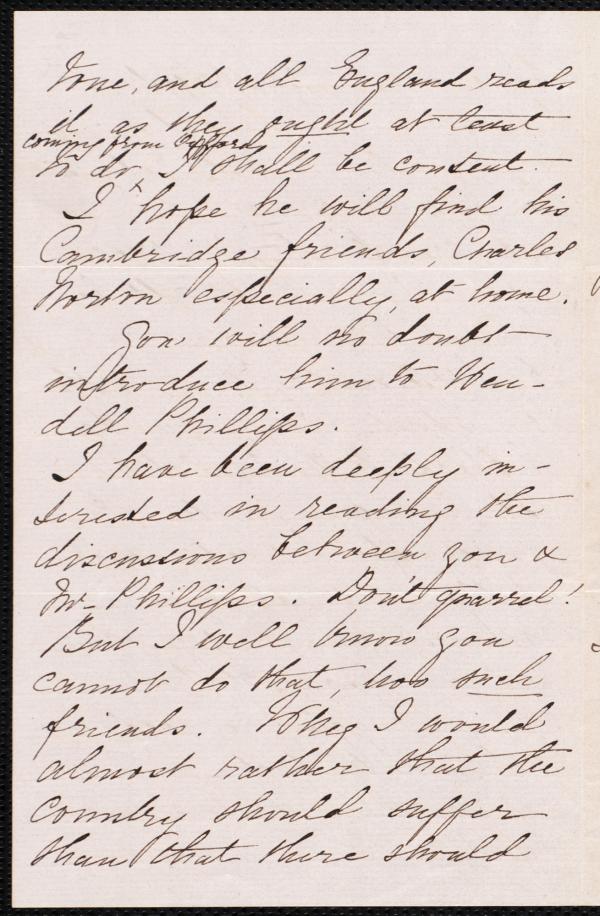 tone, and all England reads
it as they ought at least
coming from Oxford
to do, ^ I shall be content.
I hope he will find his
Cambridge friends, Charles
Norton especially, at home.
You will no doubt
introduce him to Wen-
dell Phillips.
I have been deeply in-
terested in reading the
discussions between you &
Mr- Phillips. Don't quarrel!
But I well know you
cannot do that, two such
friends. Why I would
almost rather that the
country should suffer
than that there should